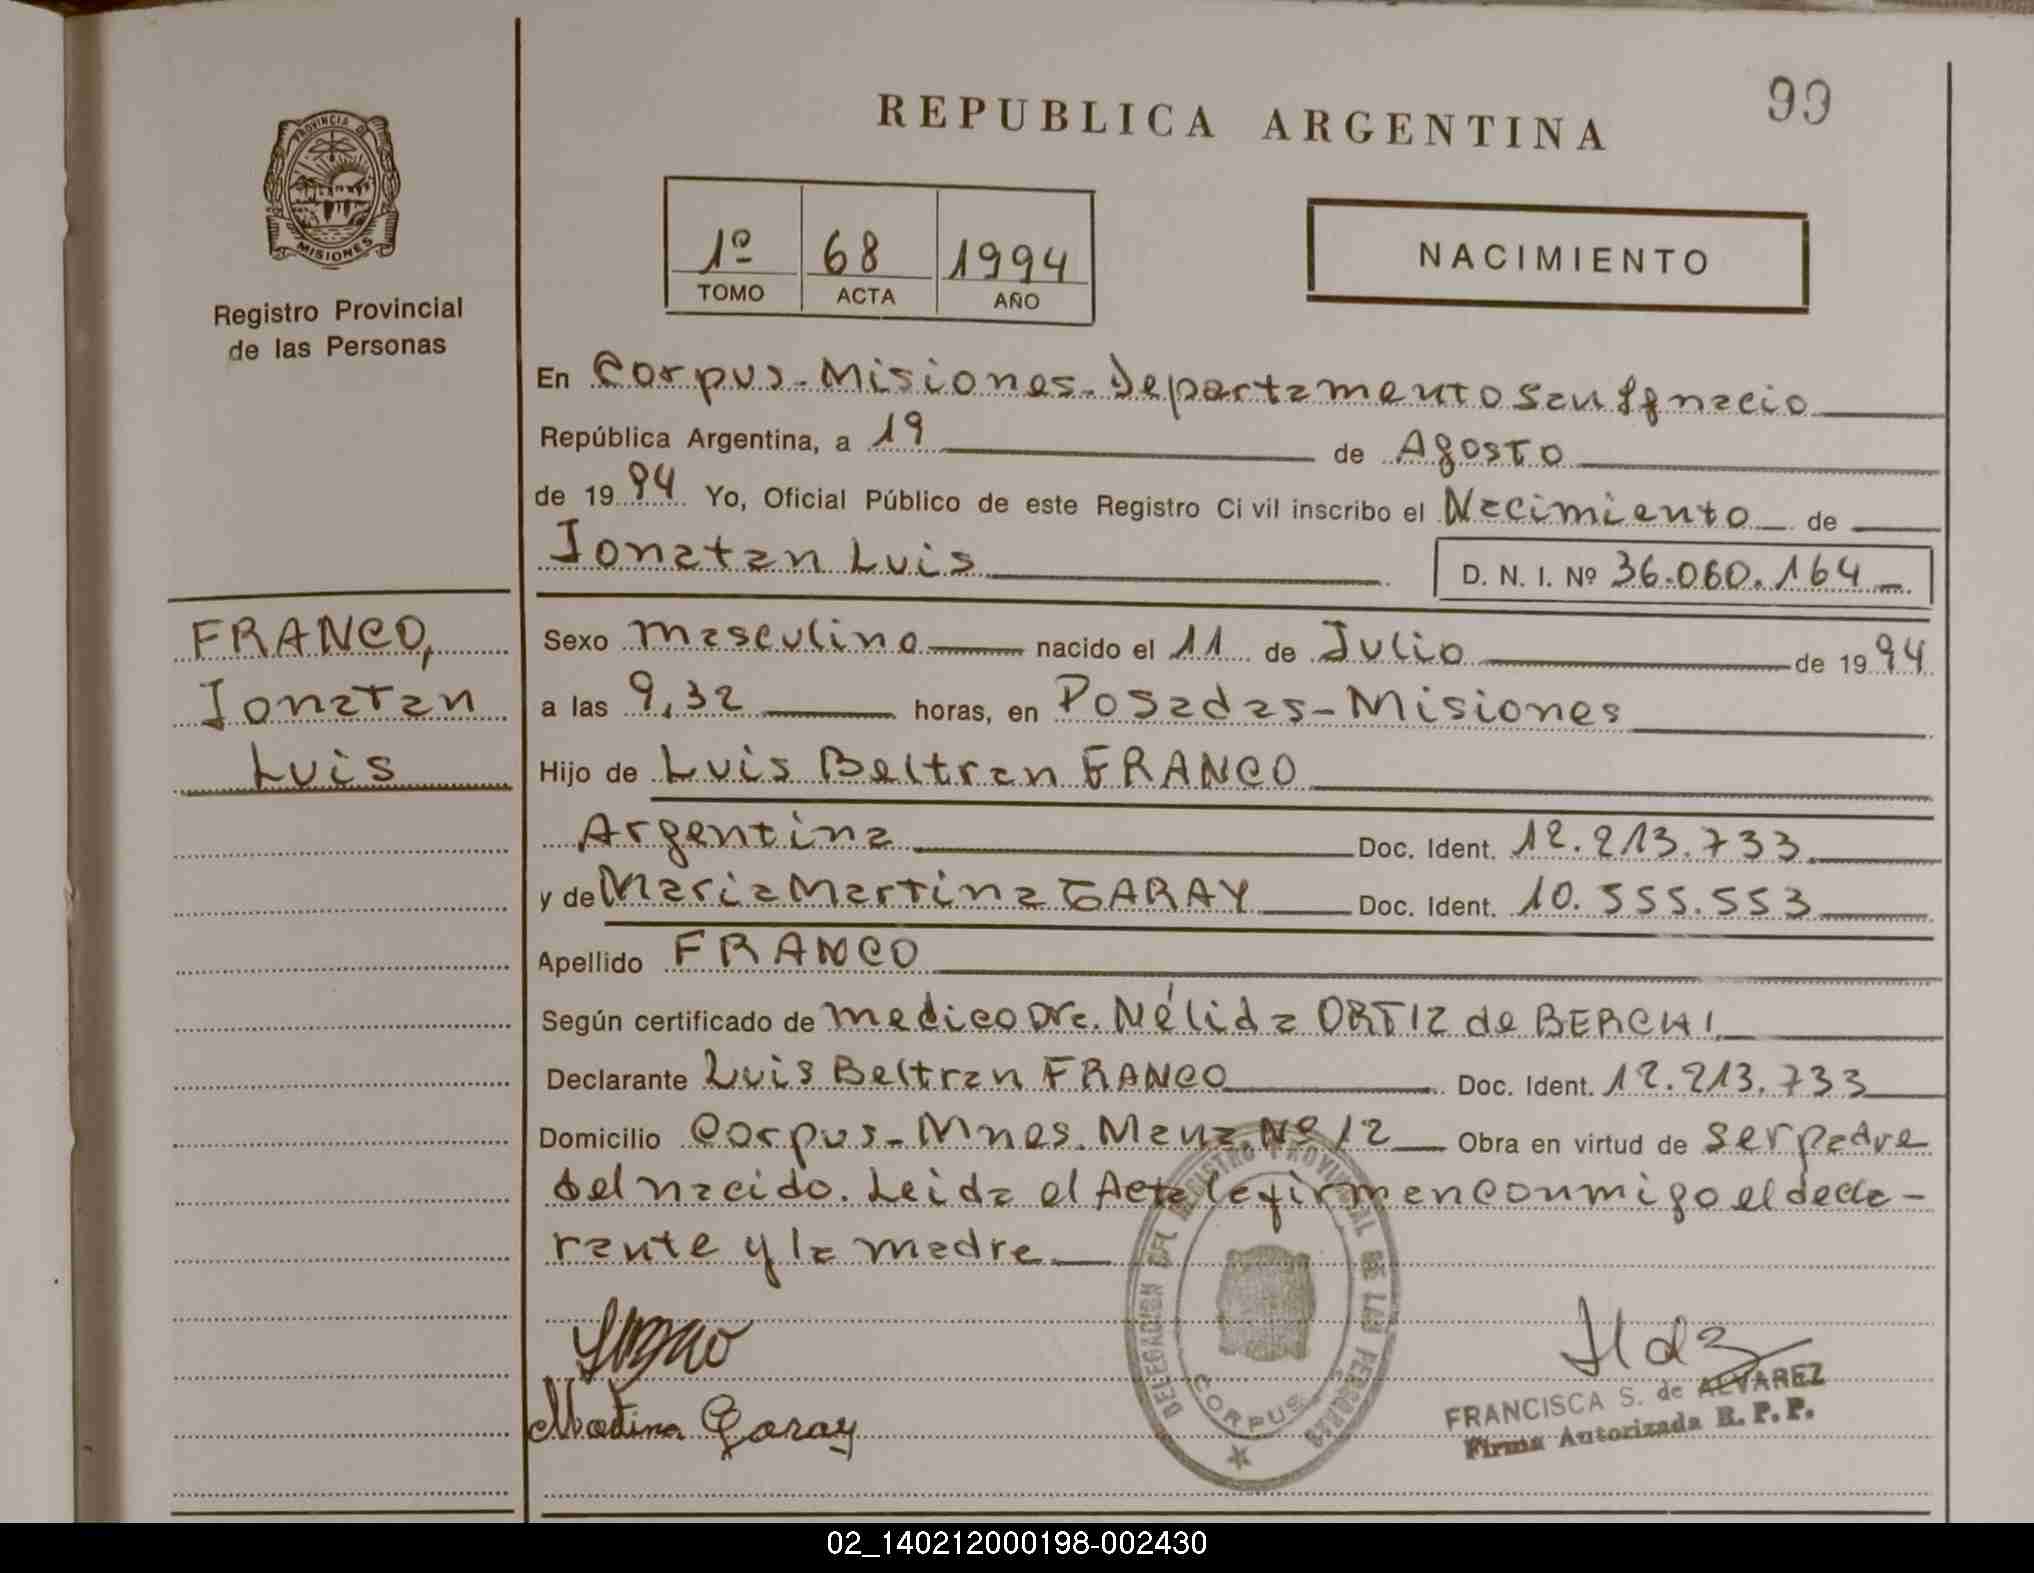 99
REPUBLICA ARGENTINA
PROVINCIA D
MISIONES
Registro Provincial
de las Personas
1º 68 1994
TOMO ACTA AÑO
NACIMIENTO
En Corpus-Misiones-Departamento San Ignacio
República Argentina, a 19 de Agosto
de 1994 Yo, Oficial Público de este Registro Civil inscribo el Nacimiento de
Jonatan Luis D. N. I. Nº 36.060.164
FRANCO,
Jonatan
Luis
Sexo masculino nacido el 11 de Julio de 1994
a las 9,32 horas, en Posadas-Misiones
Hijo de Luis Beltran FRANCO
Argentina Doc. Ident. 12.213.733
y de Maria Martina GARAY Doc. Ident. 10.555.553
Apellido FRANCO
Según certificado de medico Dra. Nélida ORTIZ de BERCHI
Declarante Luis Beltran FRANCO Doc. Ident. 12.213.733
Domicilio Corpus-Mnes. Manz. Nº 12 Obra en virtud de ser padre
del nacido. Leida el Acta la firman conmigo el decla-
rante y la madre
DELEGACION DEL REGISTRO PROVINCIAL DE LAS PERSONAS
CORPUS
Martina Garay
FRANCISCA S. de ALVAREZ
Firma Autorizada R. P. P.
02_140212000198-002430